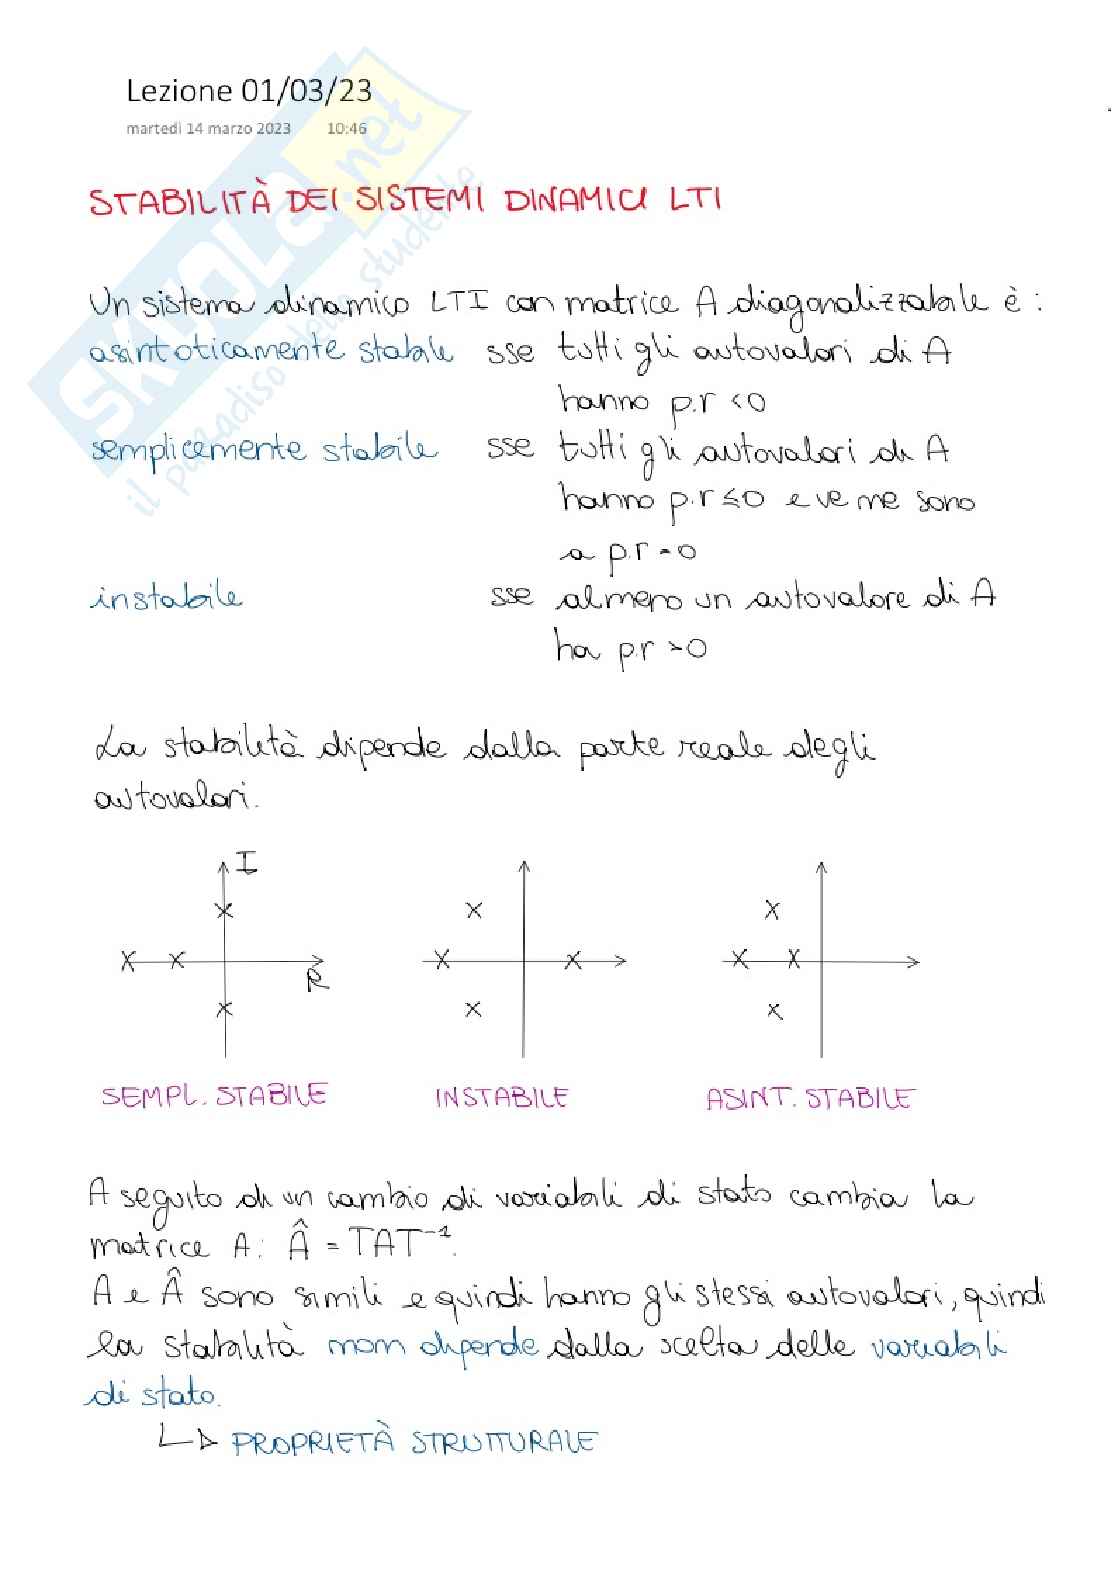 Lezione 01/03/23
martedì 14 marzo 2023 10:46
SKUOLA.net
il paradiso dello studente
STABILITÀ DEI SISTEMI DINAMICI LTI
Un sistema dinamico LTI con matrice A diagonalizzabile è:
asintoticamente stabile sse tutti gli autovalori di A
hanno p.r <0
semplicemente stabile sse tutti gli autovalori di A
hanno p.r ≤0 e ve ne sono
a p.r =0
instabile sse almeno un autovalore di A
ha p.r >0
La stabilità dipende dalla parte reale degli
autovalori.
I
R
SEMPL. STABILE INSTABILE ASINT. STABILE
A seguito di un cambio di variabili di stato cambia la
matrice A: Â = TAT⁻¹.
A e Â sono simili e quindi hanno gli stessi autovalori, quindi
la stabilità non dipende dalla scelta delle variabili
di stato.
↳ PROPRIETÀ STRUTTURALE